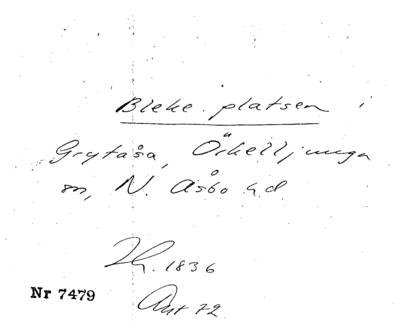 Bleke-platsen i
Grytåsa, Örkelljunga
sn, N. Åsbo hd.
1836
Nr 7479
72